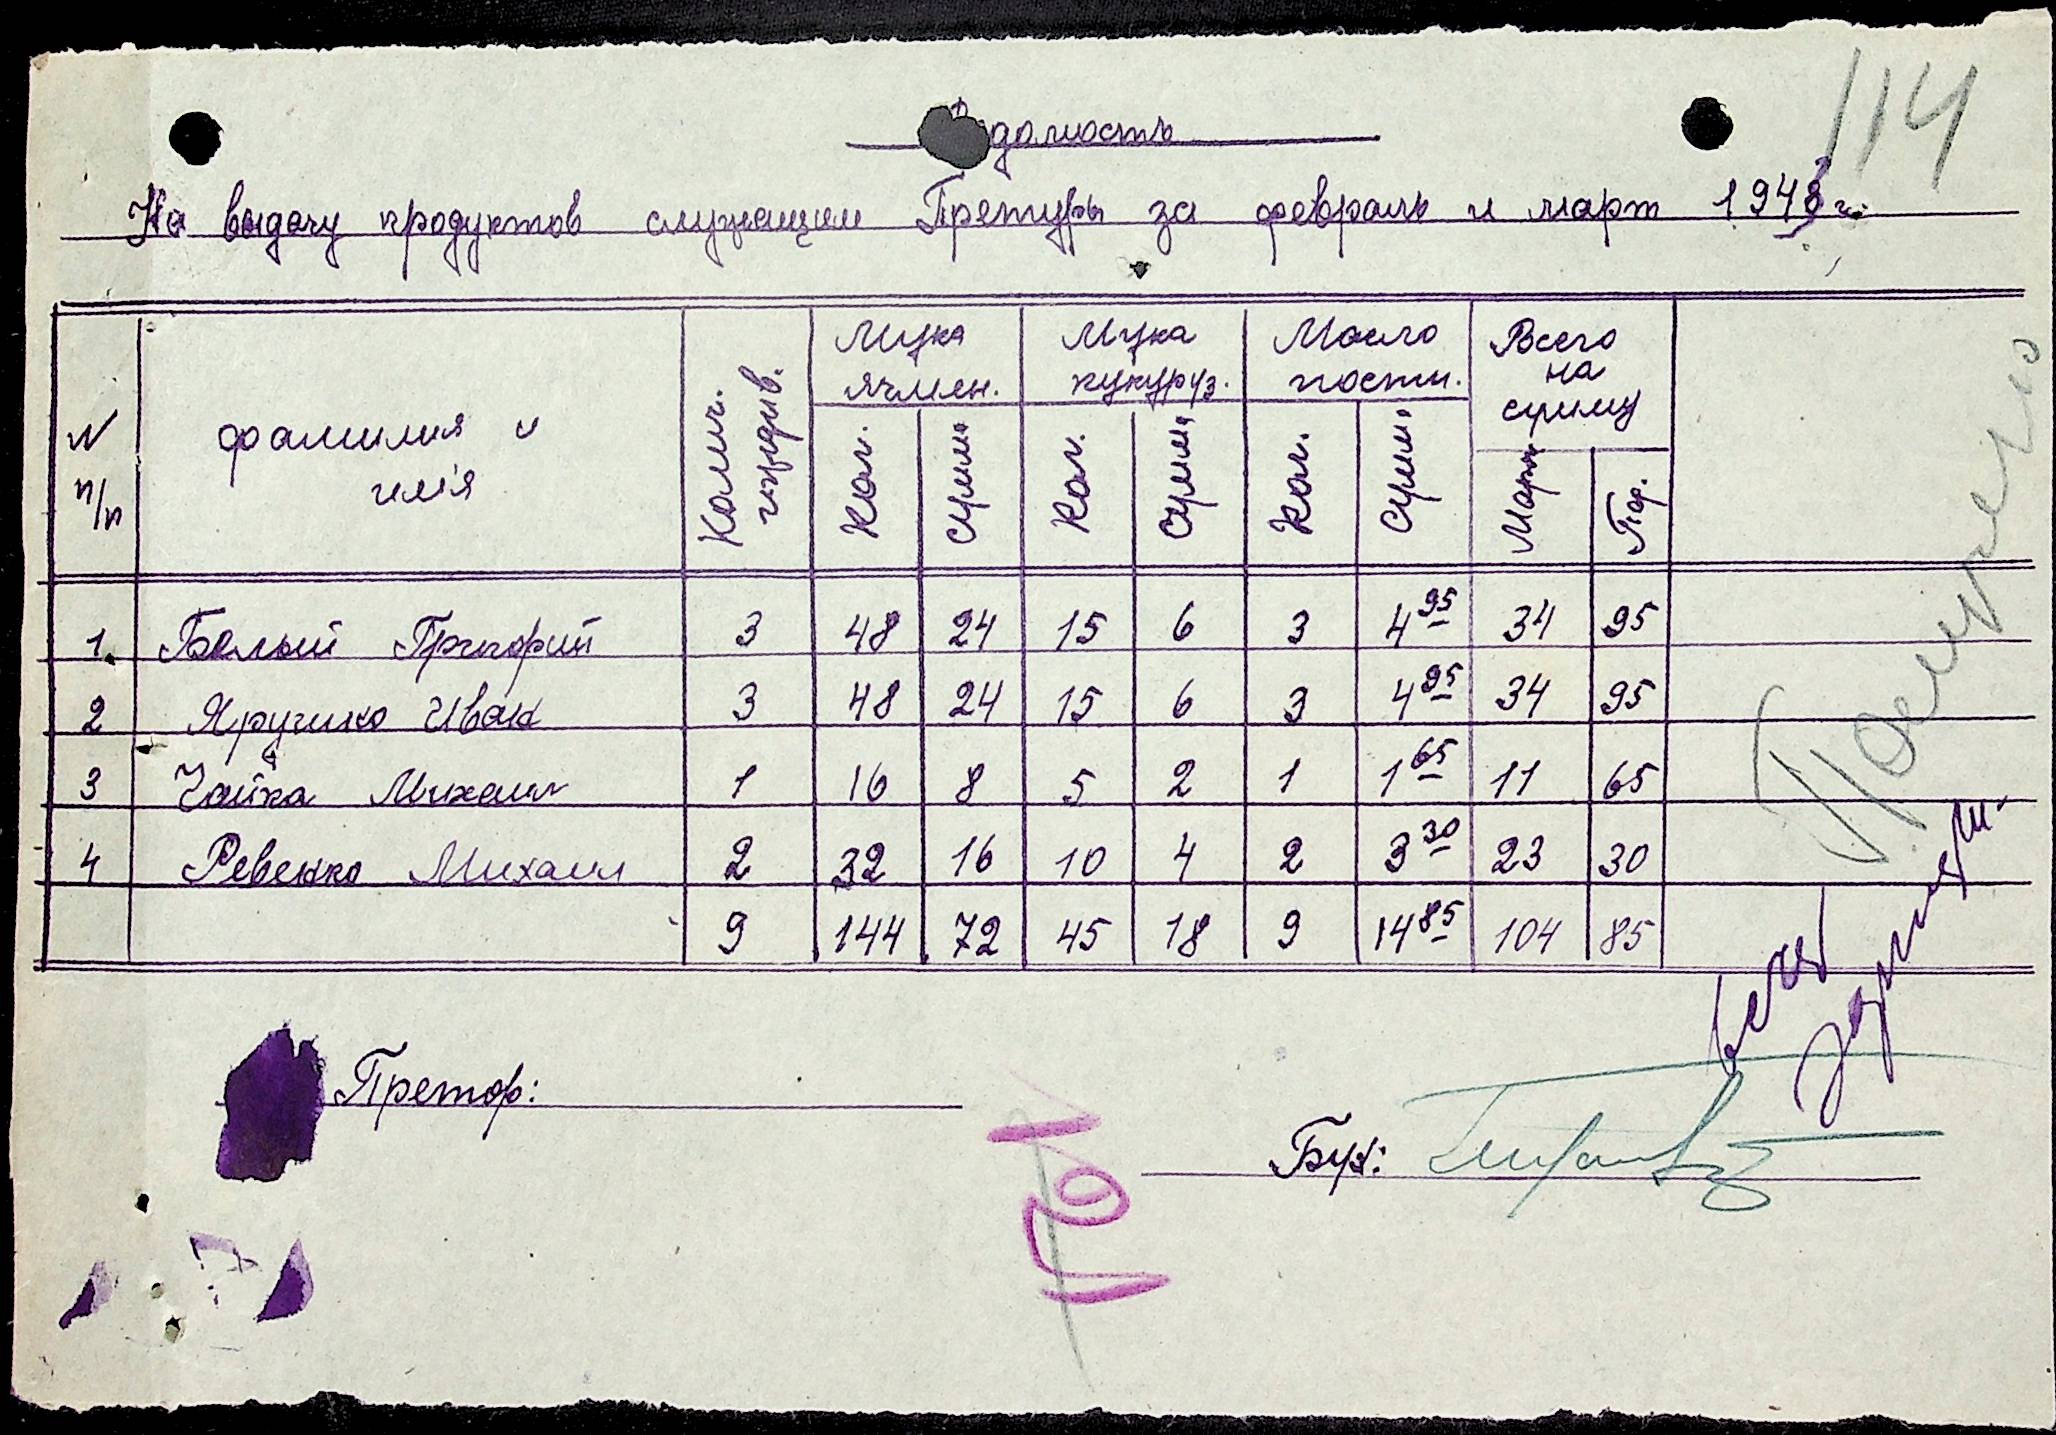 Ведомость
114
На выдачу продуктов служащим Претуры за февраль и март 1943 г.
N п/п фамилия и имя Колич. индив. Мука ячмен. Мука кукуруз. Масло постн. Всего на сумму
Кол. Сумм. Кол. Сумм. Кол. Сумм. Март Пф.
1 Белый Григорий 3 48 24 15 6 3 4 95 34 95
2 Яручико Иван 3 48 24 15 6 3 4 95 34 95
3 Чайка Михаил 1 16 8 5 2 1 1 65 11 65
4 Ревенко Михаил 2 32 16 10 4 2 3 30 23 30
9 144 72 45 18 9 14 85 104 85
Претор:
Бух: